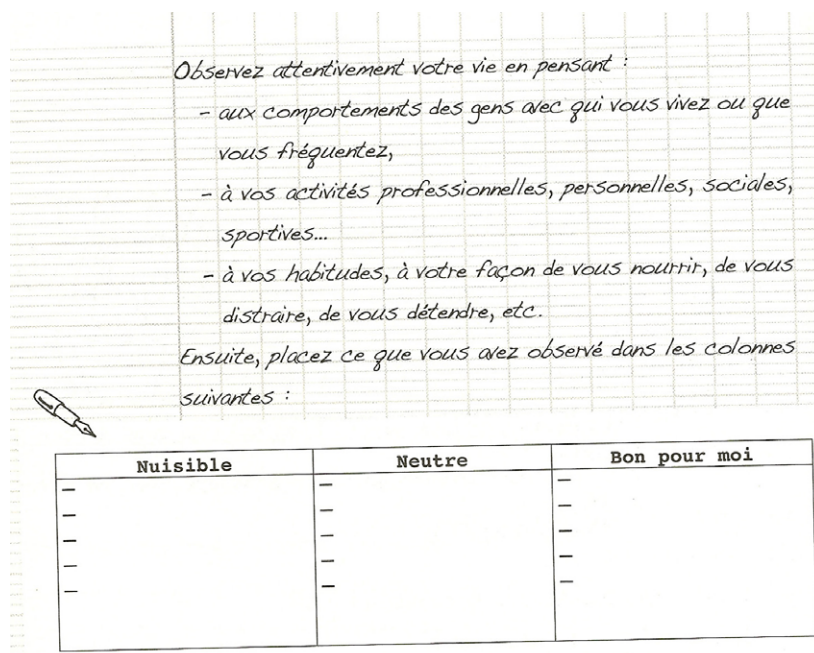 Observez attentivement votre vie en pensant :
- aux comportements des gens avec qui vous vivez ou que
vous fréquentez,
- à vos activités professionnelles, personnelles, sociales,
sportives...
- à vos habitudes, à votre façon de vous nourrir, de vous
distraire, de vous détendre, etc.
Ensuite, placez ce que vous avez observé dans les colonnes
suivantes :
Nuisible Neutre Bon pour moi
- - -
- - -
- - -
- - -
- - -